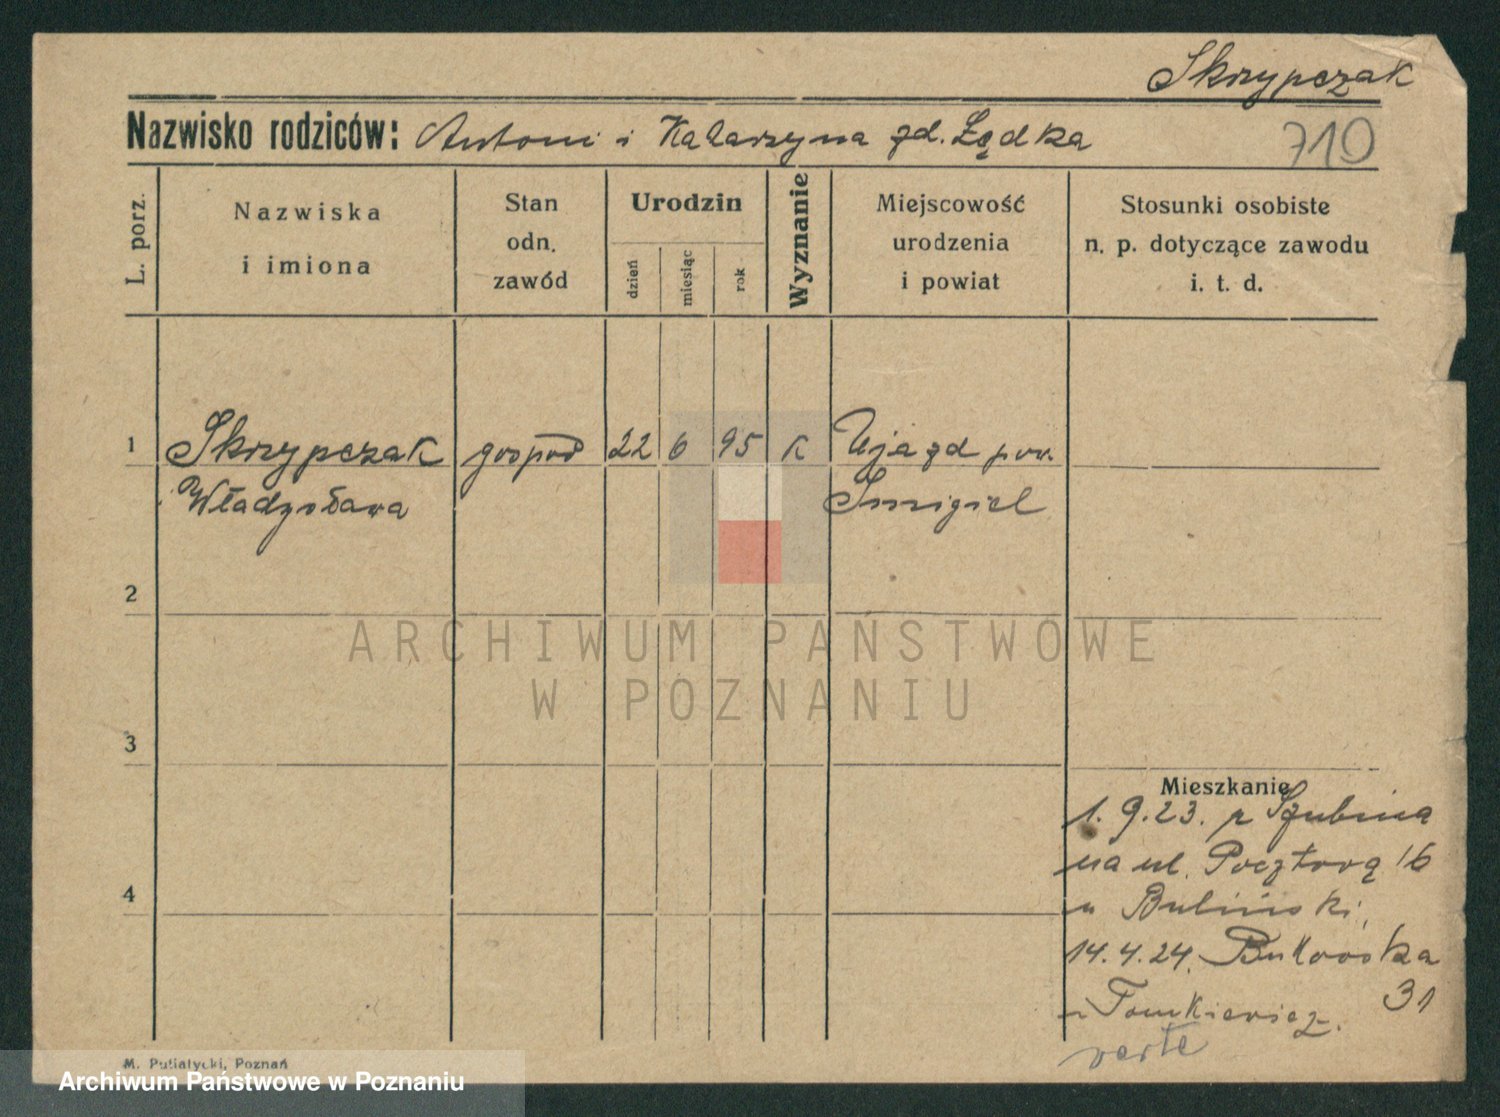 Skrzypczak
Nazwisko rodziców: Antoni i Katarzyna zd. Łędka
710
L. porz.
Nazwiska
i imiona
Stan
odn.
zawód
Urodzin
dzień
miesiąc
rok
Wyznanie
Miejscowość
urodzenia
i powiat
Stosunki osobiste
n. p. dotyczące zawodu
i. t. d.
1 Skrzypczak gospod 22 6 95 K Ujazd pow.
Władysława Smigiel
2
ARCHIWUM PAŃSTWOWE
W POZNANIU
3
Mieszkanie
1. 9. 23. z Szubina
na ul. Pocztową 16
u Buliński,
14. 4. 24. Bukowska
31
u Tomkiewicz.
verte
4
M. Putiatycki, Poznań
Archiwum Państwowe w Poznaniu